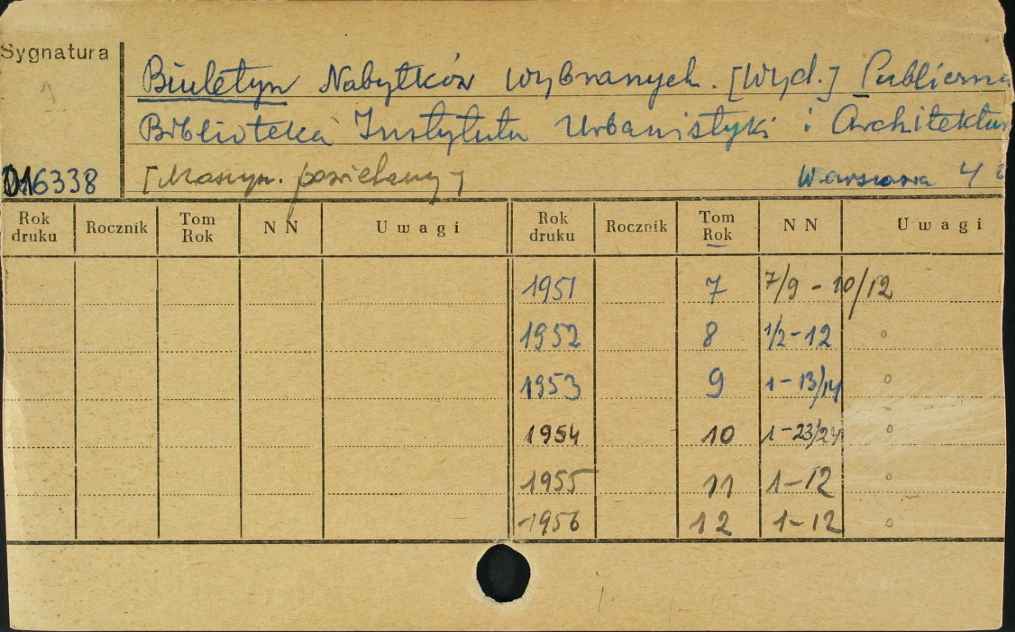 Sygnatura
Biuletyn Nabytków wybranych. [Wyd.] Publiczna
Biblioteka Instytutu Urbanistyki i Architektur
16338 [Maszyn. powielany] Warszawa 4
Rok druku Rocznik Tom Rok NN Uwagi Rok druku Rocznik Tom Rok NN Uwagi
1951 7 7/9 - 10/12
1952 8 1/2 - 12 °
1953 9 1 - 13/14 °
1954 10 1 - 23/24 °
1955 11 1 - 12 °
1956 12 1 - 12 °